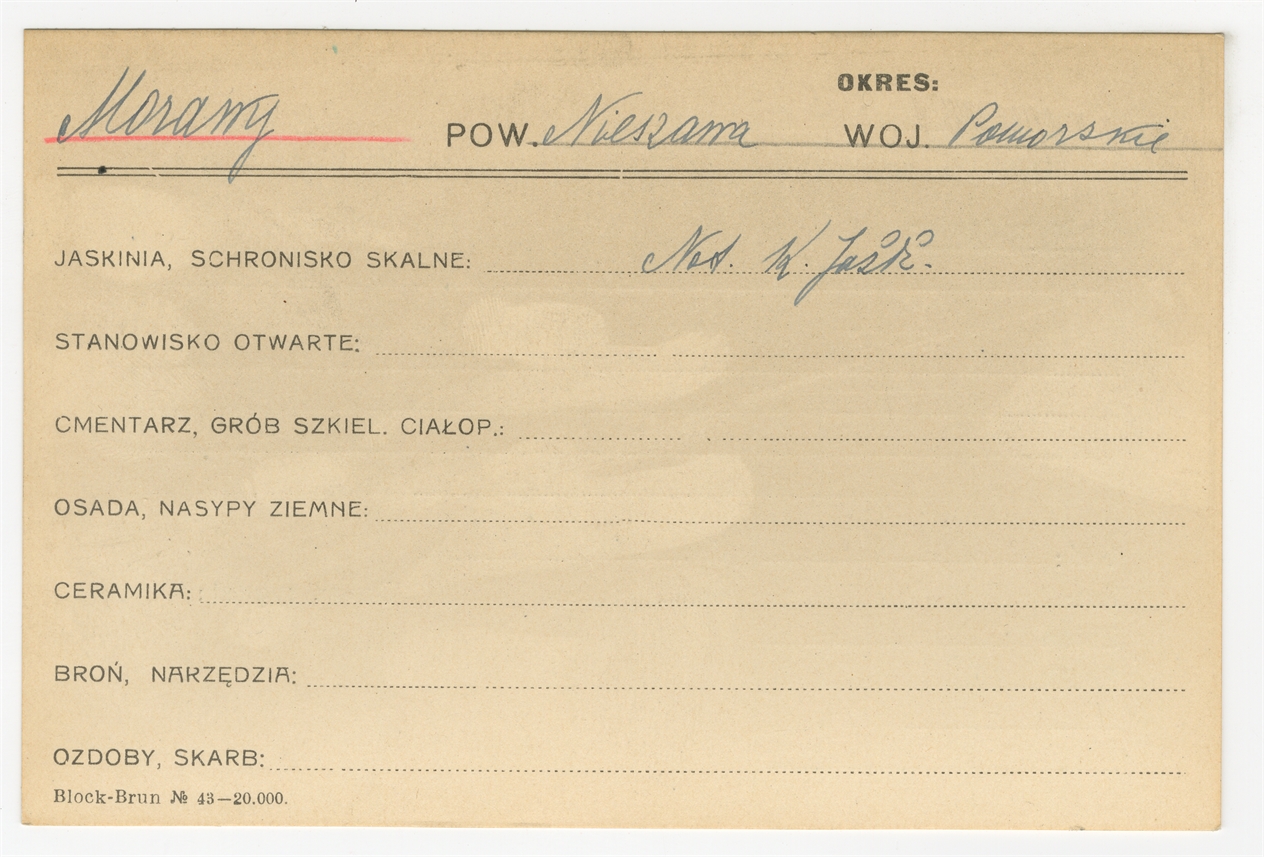 OKRES:
Morawy POW. Nieszawa WOJ. Pomorskie
JASKINIA, SCHRONISKO SKALNE: Not. K. Jaśk.
STANOWISKO OTWARTE:
CMENTARZ, GRÓB SZKIEL. CIAŁOP.:
OSADA, NASYPY ZIEMNE:
CERAMIKA:
BROŃ, NARZĘDZIA:
OZDOBY, SKARB:
Block-Brun № 43—20.000.